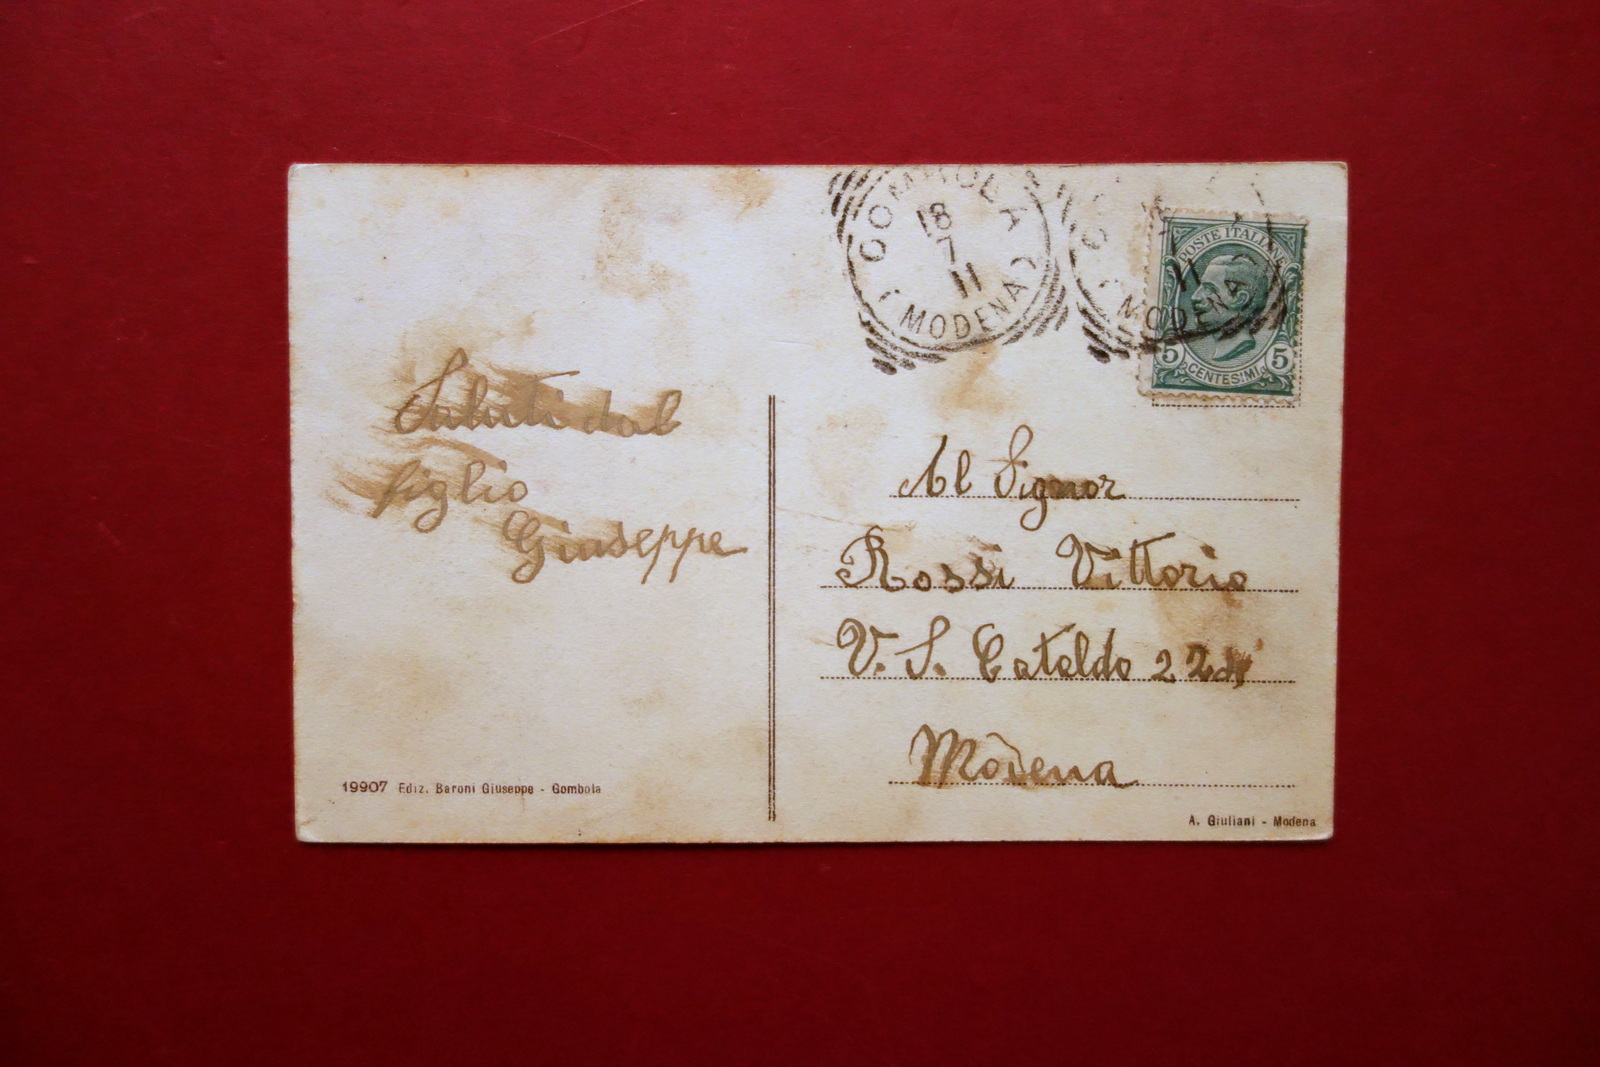 Saluti dal
figlio
Giuseppe
19907 Ediz. Baroni Giuseppe - Gombola
GOMBOLA
18
7
11
(MODENA)
11
(MODENA)
POSTE ITALIANE
5 5
CENTESIMI
Al Signor
Rossi Vittorio
V. S. Cataldo 22
Modena
A. Giuliani - Modena